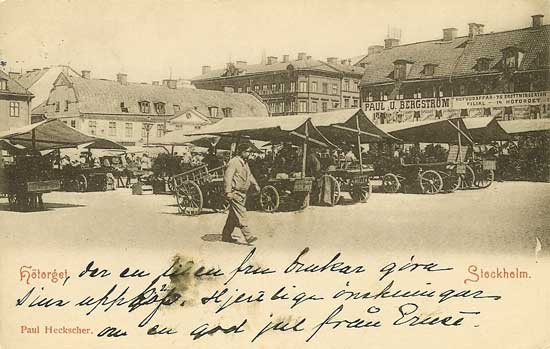 PAUL U. BERGSTRÖM
FILIAL HÖTORGET
Hötorget, där en fin en fru brukar göra
Stockholm.
sina uppköp. Hjertliga önskningar
Paul Heckscher.
om en god jul från Ernst.